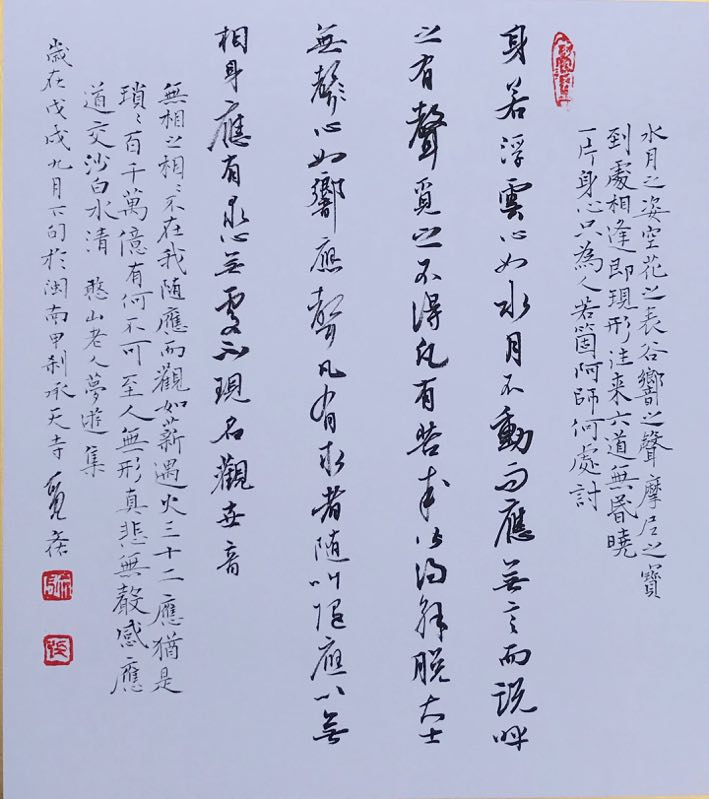 水月之姿空花之表谷響之聲摩尼之寶
到處相逢即現形往来六道無昏曉
一片身心只為人若箇阿師何處討
身若浮雲心如水月不動而應無言而説呼
之有聲覓之不得凡有苦求以得解脱大士
無聲心如響應聲凡有求者随叫随應以無
相身應有求心無處不現名觀世音
無相之相〻不在我随應而觀如薪遇火三十二應猶是
瑣〻百千萬億有何不可至人無形真悲無聲感應
道交沙白水清 憨山老人夢遊集
歲在戊戌九月下旬於閩南甲刹承天寺